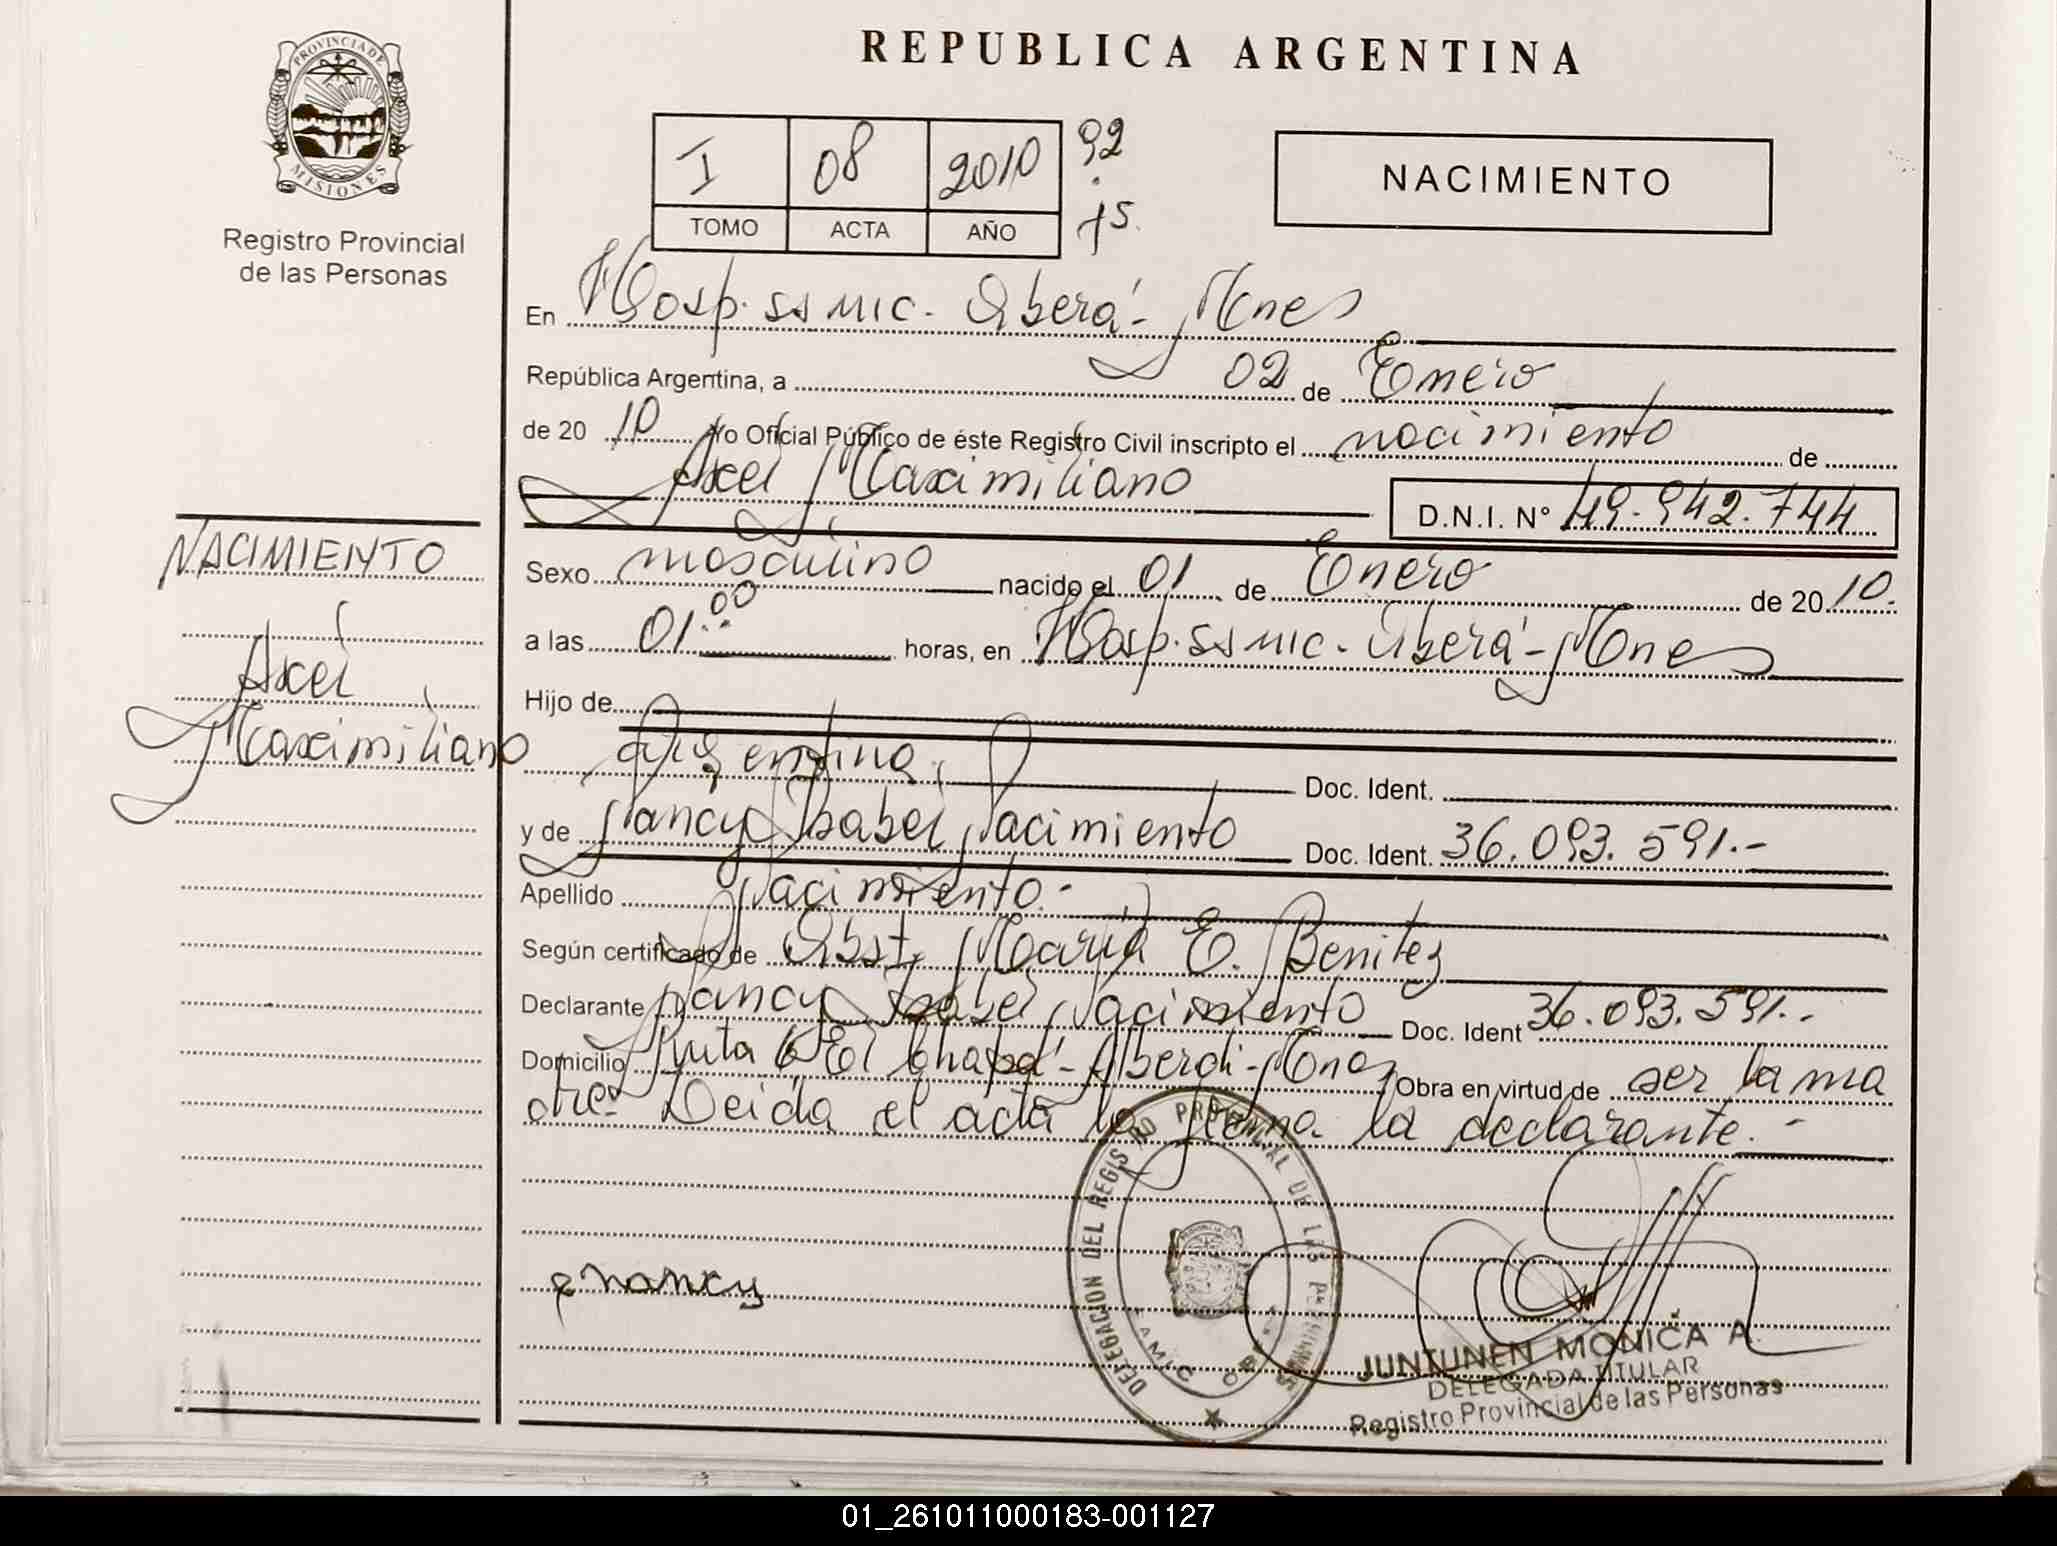 PROVINCIA DE
MISIONES
Registro Provincial
de las Personas
REPUBLICA ARGENTINA
I 08 2010 92
TOMO ACTA AÑO 75.
NACIMIENTO
En Hosp. ss mic. Oberá - Mnes
República Argentina, a 02 de Enero
de 20 10 Yo Oficial Público de éste Registro Civil inscripto el nacimiento de
Axel Maximiliano D.N.I. Nº 49.942.744
Sexo masculino nacido el 01 de Enero de 20 10.
a las 01:00 horas, en Hosp. ss mic. Oberá - Mnes
Hijo de
argentina, Doc. Ident.
y de Nancy Isabel Nacimiento Doc. Ident. 36.093.591.-
Apellido Nacimiento.-
Según certificado de Obst. María E. Benitez
Declarante Nancy Isabel Nacimiento Doc. Ident 36.093.591..
Domicilio Ruta 6 El Chapá - Alberdi - Mnes Obra en virtud de ser la ma
dre. Leida el acta la firma la declarante. -
NACIMIENTO
Axel
Maximiliano
nancy
DELEGACION DEL REGISTRO PROVINCIAL DE LAS PERSONAS
JUNTUNEN MONICA A.
DELEGADA TITULAR
Registro Provincial de las Personas
01_261011000183-001127